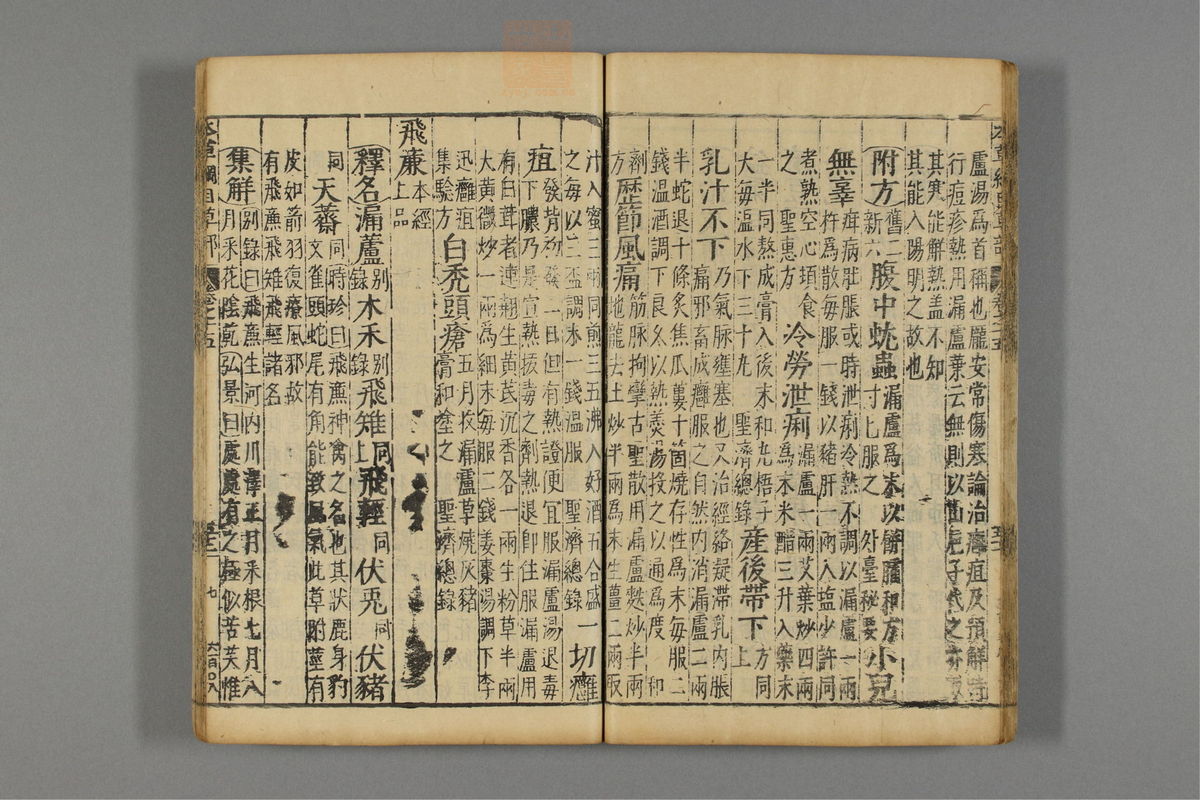 盧湯爲首稱也龐安常傷寒論治癰疽及預解時
行痘疹熱用漏盧葉云無則以山梔子代之亦取
其寒能解熱盖不知
其能入陽明之故也
附方 舊二 新六 腹中蚘蟲 漏盧爲末以餅臛和方 寸匕服之 外臺秘要 小兒
無辜 疳病肚脹或時泄痢冷熱不調以漏盧一兩
杵爲散每服一錢以豬肝一兩入塩少許同
煮熟空心頓食 冷勞泄痢 漏盧一兩艾葉炒四兩
之 聖惠方 爲末米醋三升入藥末
一半同熬成膏入後末和丸梧子 產後帶下 方同
大每温水下三十丸 聖濟總錄 上
乳汁不下 乃氣脉壅塞也又治經絡凝滯乳內脹
痛邪畜成癰服之自然內消漏盧二兩
半蛇退十條炙焦瓜蔞十箇燒存性爲末每服二
錢温酒調下良久以熱羹湯投之以通爲度 和
劑 歷節風痛 筋脉拘攣古聖散用漏盧麩炒半兩
方 地龍去土炒半兩爲末生薑二兩取
汁入蜜三兩同煎三五沸入好酒五合盛 一切癰
之每以三盃調末一錢温服 聖濟總錄
疽 發背初發二日但有熱證便宜服漏盧湯退毒
下膿乃是宣熱拔毒之劑熱退卽住服漏盧用
有白茸者連翹生黄芪沉香各一兩生粉草半兩
大黄微炒一兩爲細末每服二錢姜棗湯調下李
迅癰疽 白禿頭瘡 五月收漏盧草燒灰豬
集驗方 膏和塗之 聖濟總錄
飛廉 本經上品
釋名 漏蘆 別錄 木禾 別錄 飛雉 同上 飛輕 同 伏兎 同 伏豬
同 天薺 同時珍曰飛廉神禽之名也其狀鹿身豹
文雀頭蛇尾有角能致風氣此草附莖有
皮如箭羽復療風邪故
有飛廉飛雉飛輕諸名
集解 別錄曰飛廉生河內川澤正月采根七月八
月采花陰乾 弘景曰處處有之極似苦芙惟
七